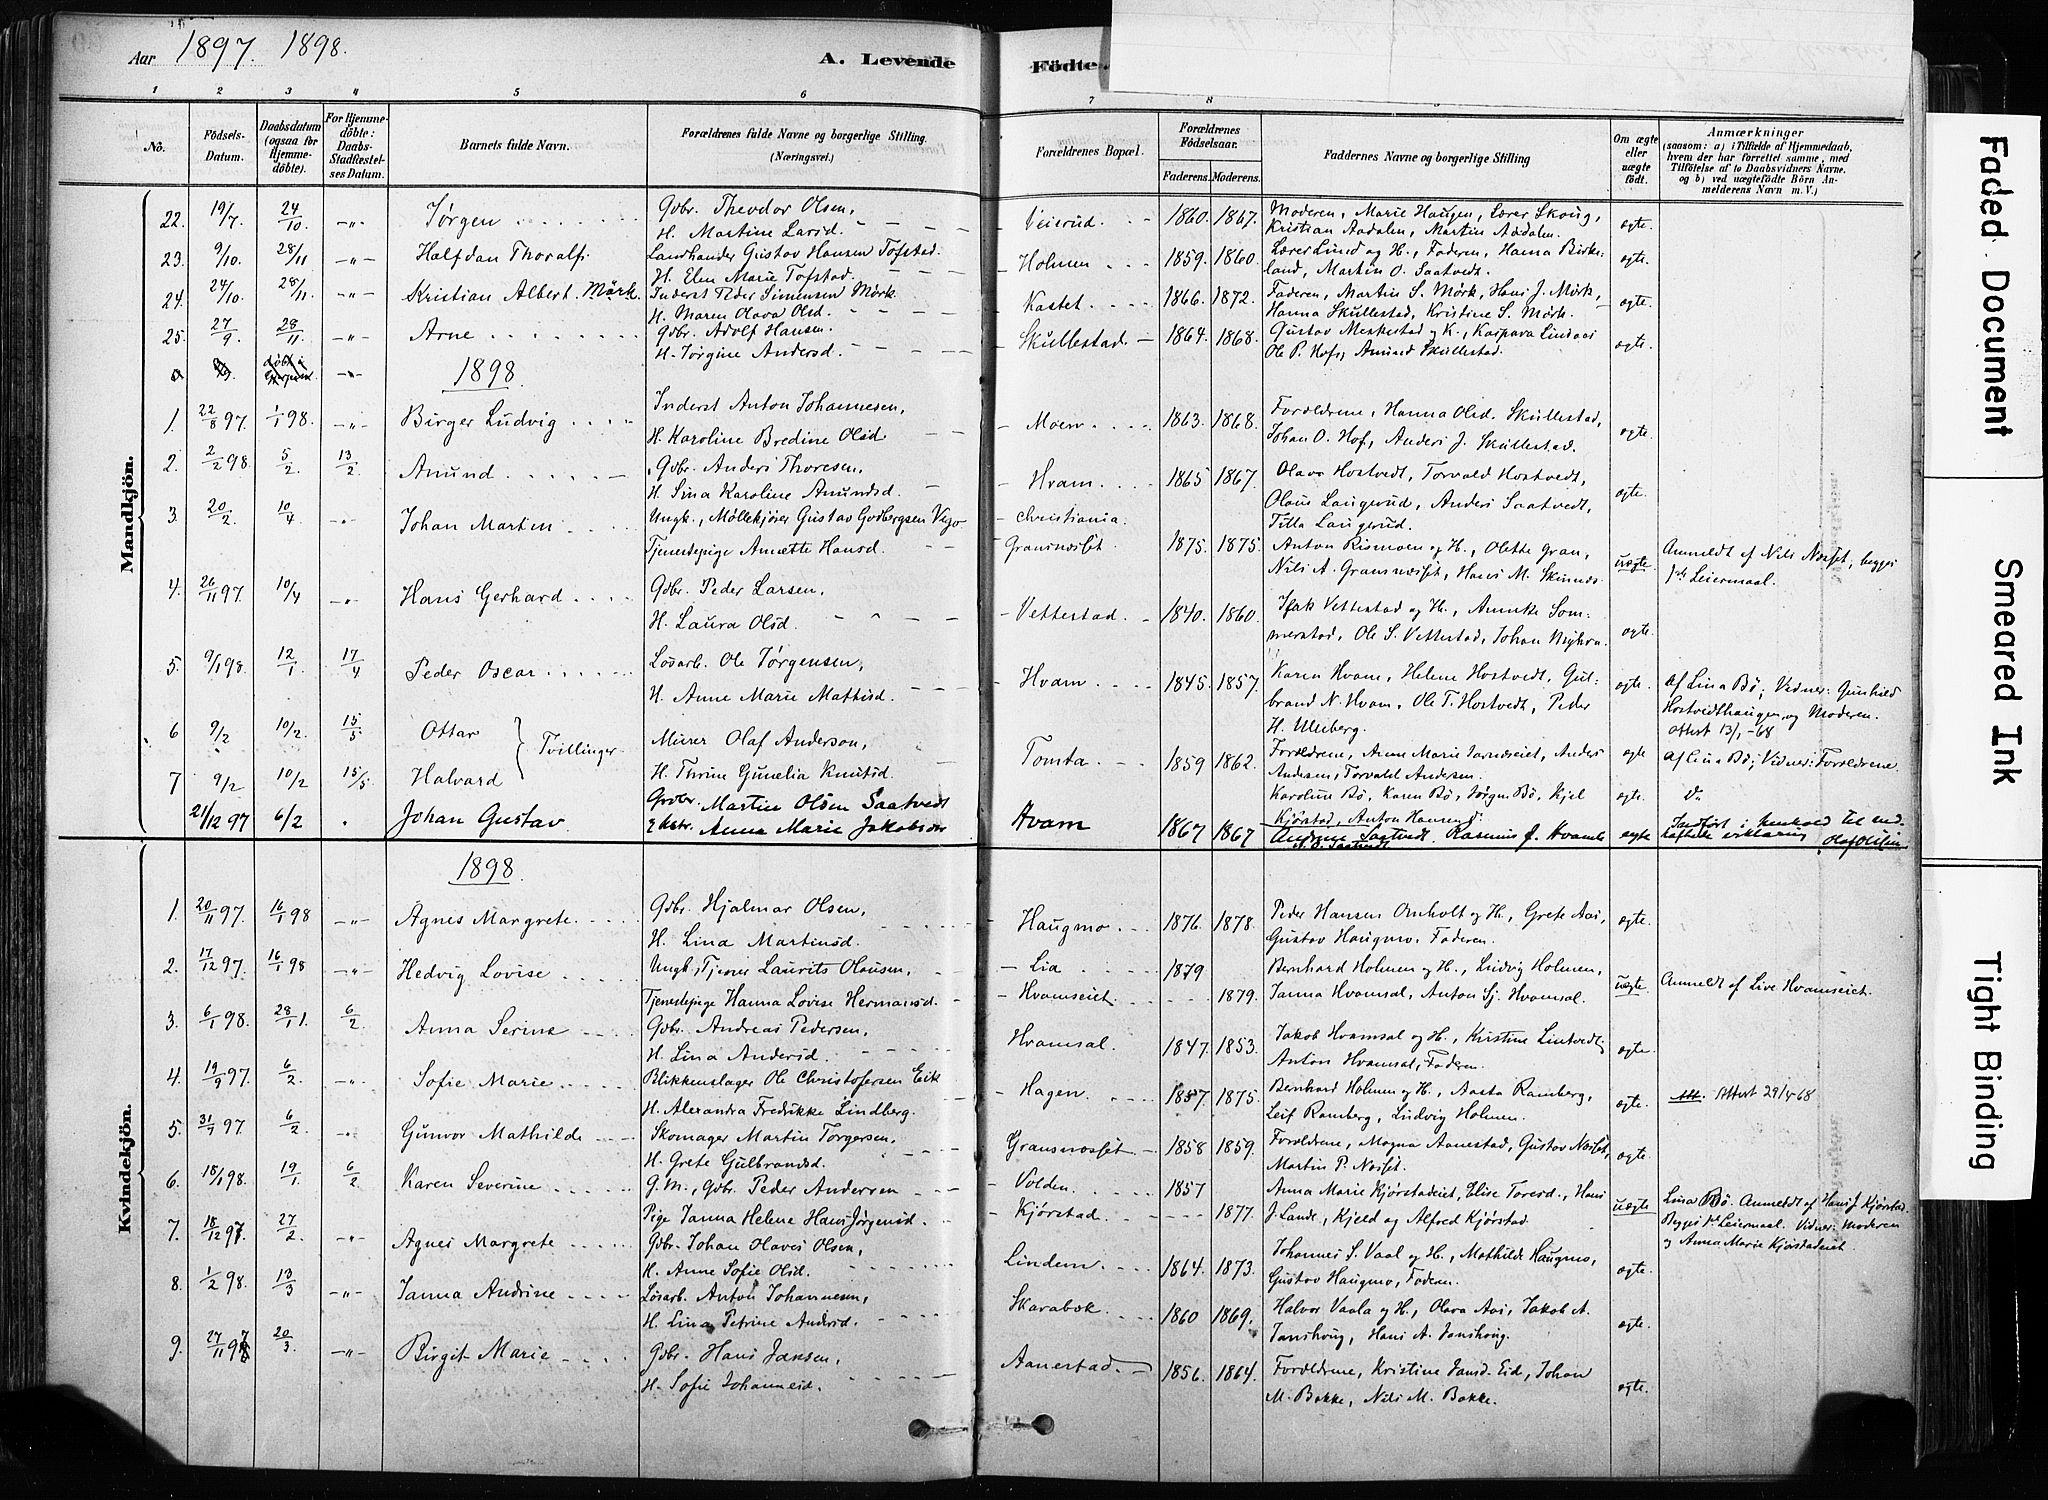 Aar 1897. 1898.
A. Levende Födte.
1 2 3 4 5 6 7 8
No.
Födsels-Datum.
Daabsdatum (ogsaa for Hjemme-döbte).
For Hjemme-döbte: Daabs-Stadfæstel-ses Datum.
Barnets fulde Navn.
Forældrenes fulde Navne og borgerlige Stilling.
(Næringsvei.)
Forældrenes Bopæl.
Forældrenes Födselsaar.
Faderens. Moderens.
Faddernes Navne og borgerlige Stilling
Om ægte eller uægte födt.
Anmærkninger
(saasom: a) i Tilfælde af Hjemmedaab, hvem der har forrettet samme, med Tilföielse af to Daabsvidners Navne, og b) ved uægtefödte Börn An-melderens Navn m. V.)
Mandkjön.
22. 19/7. 24/10 -"- Jørgen Gbr. Theodor Olsen, Veierud. 1860. 1867. Moderen, Marie Haugen, Lærer Skoug, ægte.
H. Martine Larsd. Kristian Aadalen, Martin Aadalen.
23. 9/10. 28/11 -"- Halfdan Thoralf. Landhandler Gustav Hansen Tofstad. Holmen 1859. 1860. Lærer Lund og H., Faderen, Hanna Birke- ægte.
H. Elen Marie Tofstad. land, Martin O. Saatvedt.
24. 24/10. 28/11 -"- Kristian Albert. Mörk. Inderst Peder Simensen Mørk. Kastet 1866. 1872. Faderen, Martin S. Mørk, Hans J. Mørk, ægte.
H. Maren Olava Olsd. Hanna Skullestad, Kristine S. Mørk.
25. 27/9. 28/11 -"- Arne Gbr. Adolf Hansen. Skullestad. 1864. 1868. Gustav Meskestad og K., Kaspara Lindaas ægte.
H. Jørgine Andersd. Ole P. Hof, Amund Skullestad.
1898.
1. 22/8 97. 1/1 98. -"- Birger Ludvig Inderst Anton Johannesen, Moen 1863. 1868. Forældrene, Hanna Olsd. Skullestad, ægte.
H. Karoline Bredine Olsd Johan O. Hof, Anders J. Skullestad.
2. 2/2 98. 5/2. 13/2 Amund Gbr. Anders Thoresen, Hvam. 1865 1867. Olava Hostvedt, Torvald Hostvedt, ægte.
H. Sina Karoline Amundsd. Olaus Laugerud, Anders Saatvedt,
Titta Laugerud.
3. 20/2. 10/4 -"- Johan Martin Ungk., Møllekjører Gustav Godbergsen Vego Christiania. 1875. 1875. Anton Rismoen og H., Olette Gran, uægte. Anmeldt af Nils Næsset, begges
Tjenestepige Anette Hansd. Gransnæsset Nils A. Gransnæsset, Hans M. Skinnes 1ste Leiermaal.
4. 26/11 97. 10/4 -"- Hans Gerhard Gbr. Peder Larsen, Vettestad 1840. 1860. Isak Vettestad og H., Annike Som- ægte.
H. Laura Olsd. merstad, Ole S. Vettestad, Johan
5. 9/1 98. 12/1. 17/4 Peder Oscar Løsarb. Ole Jørgensen, Hvam 1845. 1857. Karen Hvam, Helene Hostvedt, Gul- ægte. Af Lina Bö; Vidner: Gunhild
H. Anne Marie Mathisd. brand N. Hvam, Ole T. Hostvedt, Peder Hostvedthaugen og Moderen.
H. Ulleberg. Attest 13/1-68
6 9/2 10/2. 15/5 Ottar Tvillinger Murer Olaf Anderson, Tomta 1859 1862. Forældrene, Anne Marie, Anders ægte Af Lina Bö; Vidner: Forældrene.
Andersen, Torvald Andersen.
7 9/2 10/2 15/5. Halvard H. Thrine Gunelia Knutsd. Karoline Bö, Karen Bö, Jørgen Bö, Kjel ægte. Do
Kjörstad, Anton Hansen
21/12 97 6/2 Johan Gustav Grdbr. Martin Olsen Saatvedt Hvam 1867 1867 Andrine Saatvedt. Rasmus J. Hvamb ægte Indført i henhold til ved-
Anna Marie Jakobsdr hæftede erklæring Olaf Olsen
Kvindekjön.
1898.
1. 20/11 97. 16/1 98 -"- Agnes Margrete. Gbr. Hjalmar Olsen, Haugmo 1876. 1878. Peder Hansen Omholt og H., Grete Aas, ægte.
H. Lina Martinsd. Gustav Haugmo, Faderen.
2. 17/12 97. 16/1 98 -"- Hedvig Lovise Ungk., Tjener Laurits Olausen, Lia 1879 Bernhard Holmen og H., Ludvig Holmen, uægte. Anmeldt af Live Hvamseiet.
Tjenestepige Hanna Lovise Hermansd. Hvamseiet 1879. Janna Hvamsal, Anton Sj. Hvamsal.
3. 6/1 98. 28/1 1. 6/2 Anna Serine Gbr. Andreas Pedersen, Hvamsal. 1847. 1853. Jakob Hvamsal og H., Kristine Lintvedt, ægte.
H. Lina Andersd. Anton Hvamsal, Faderen.
4. 19/9 97. 6/2 -"- Sofie Marie Blikkenslager Ole Christofersen Eik Hagen 1857. 1875. Bernhard Holmen og H., Aasta Ramberg, ægte. Attest 29/4 68
H. Alexandra Fredrikke Lindberg. Leif Ramberg, Ludvig Holmen.
5. 31/7 97. 6/2 Gunvor Mathilde Skomager Martin Torgersen, Gransnæsset 1858 1859. Forældrene, Magna Aanestad, Gustav Næsset, ægte.
H. Grete Gulbrandsd. Martin P. Næsset.
6. 18/1 98. 19/1 6/2 Karen Severine G.M., Gbr. Peder Andersen Volden. 1857 Anna Marie Kjørstadeiet, Elise Toresd., Hans uægte Lina Bö. Anmeldt af Hans J. Kjørstad.
Pige Janna Helene Hans Jørgensd. Kjørstad. 1877. J. Lande, Kjeld og Alfred Kjørstad Begges 1ste Leiermaal. Vidner: Moderen
og Anna Marie Kjørstadeiet.
7. 18/12 97. 27/2 -"- Agnes Margrete Gbr. Johan Olaves Olsen, Lindem. 1864. 1873. Johannes S. Vaal og H., Mathilde Haugmo, ægte.
H. Anne Sofie Olsd. Gustav Haugmo, Faderen.
8. 1/2 98. 13/3 -"- Janna Andrine Løsarb. Anton Johannesen, Skarabæk. 1860 1869. Halvor Vaala og H., Olava Aas, Jakob A. ægte.
H. Lina Petrine Andersd. Janshoug, Hans A. Janshoug.
9. 27/11 97 20/3 -"- Birgit Marie Gbr. Hans Jansen, Aanestad. 1856. 1864. Forældrene, Kristine Jansd. Eid, Johan ægte.
H. Sofie Johannesd. M. Bakke, Nils M. Bakke.
Faded Document
Smeared Ink
Tight Binding